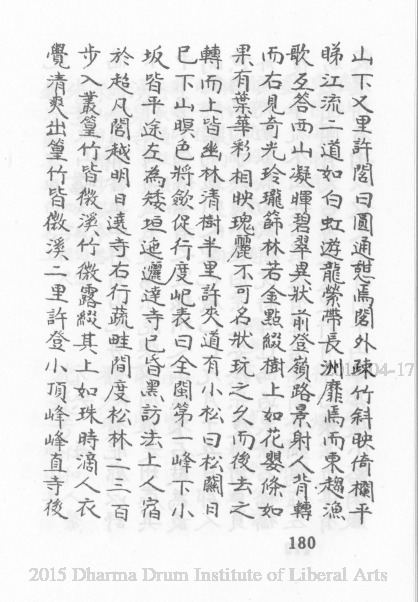 山下又里許閣曰圓通憩焉閣外疎竹斜映倚欄平
睇江流二道如白虹遊龍縈帶長洲靡焉而東趨漁
歌互答西山凝暉碧翠異狀前登嶺路景射人背轉
而右見奇光玲瓏篩林若金點綴樹上如花嬰條如
果有葉華彩相映瑰麗不可名狀玩之久而後去之
轉而上皆幽林清樹半里許夾道有小松曰松關日
已下山暝色將歛促行度屺表曰全閩第一峰下小
坂皆平途左為矮垣迤邐達寺已昏黑訪法上人宿
於超凡閣越明日遶寺右行蔬畦間度松林二三百
步入叢篁竹皆微溪竹微露綴其上如珠時滴人衣
覺清爽出篁竹皆微溪二里許登小頂峰峰直寺後
180
2015 Dharma Drum Institute of Liberal Arts